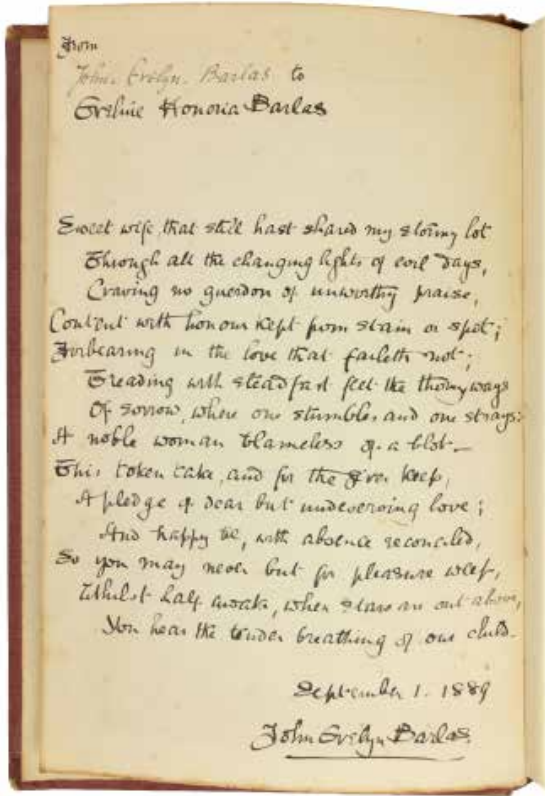 From
John. Evelyn. Barlas to
Eveline Honoria Barlas
Sweet wife, that still hast shared my stormy lot
Through all the changing lights of evil days,
Craving no guerdon of unworthy praise,
Content with honour kept from stain or spot;
Forbearing in the love that faileth not;
Treading with steadfast feet the thorny ways
Of sorrow, where one stumbles and one strays:
A noble woman blameless of a blot—
This token take, and for the giver keep,
A pledge of dear but undeserving love;
And happy be, with absence reconciled,
So you may never but for pleasure weep,
Whilst half awake, when stars are out above,
You hear the tender breathing of our child.
September 1. 1889
John Evelyn Barlas.